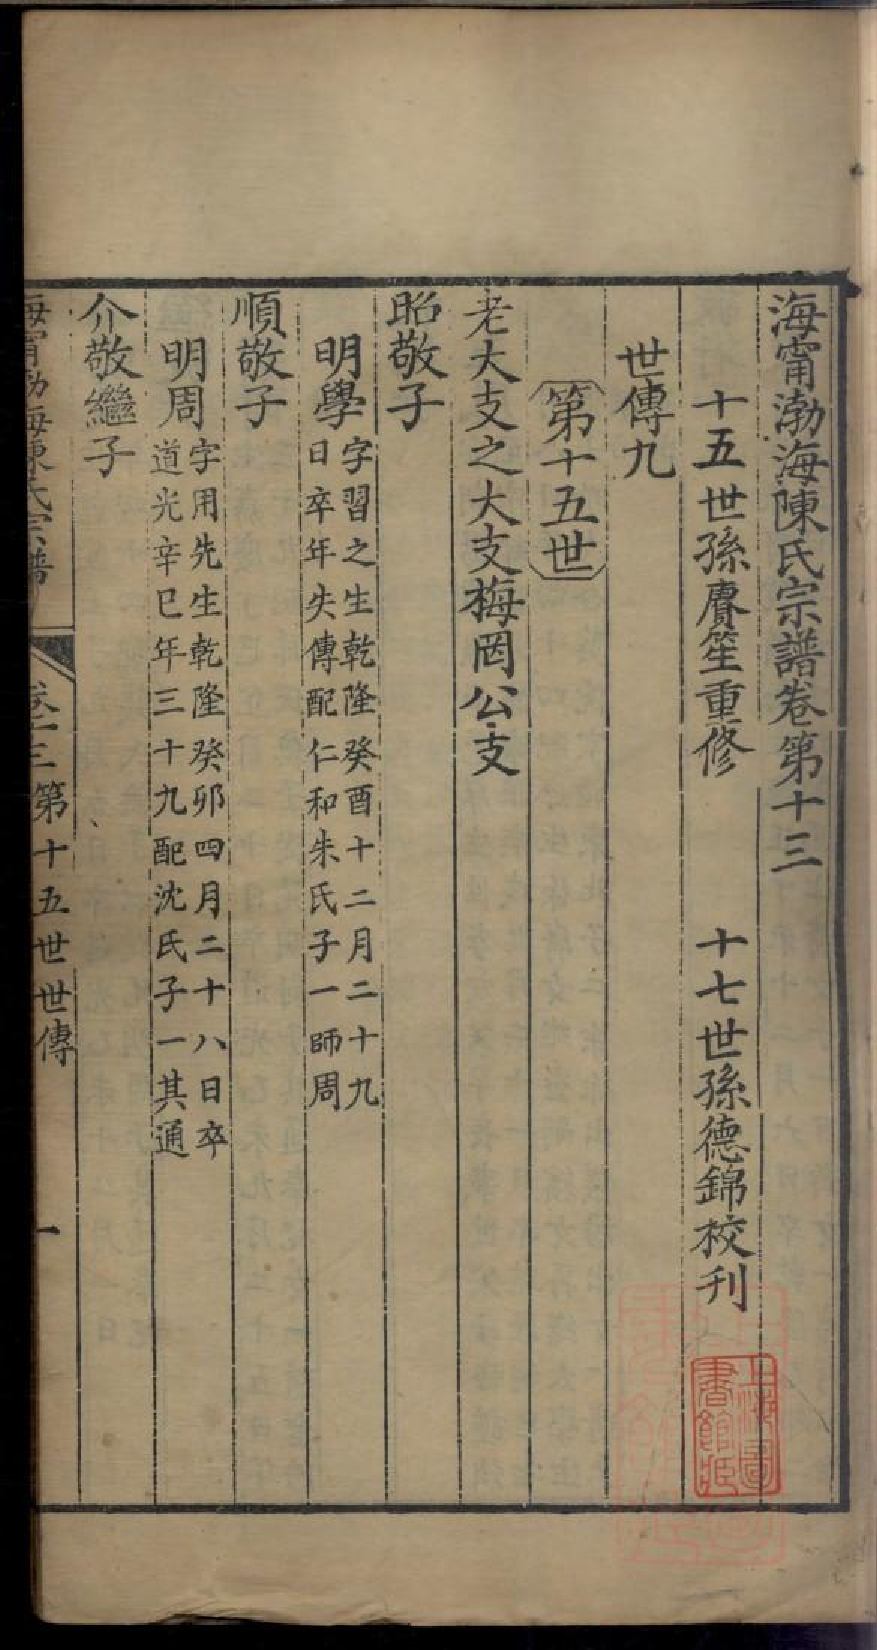 海甯渤海陳氏宗譜卷第十三
十五世孫賡笙重修 十七世孫德錦校刊
世傳九
第十五世
老大支之大支梅罔公支
昭敬子
明學 字習之生乾隆癸酉十二月二十九
日卒年失傳配仁和朱氏子一師周
順敬子
明周 字用先生乾隆癸卯四月二十八日卒
道光辛巳年三十九配沈氏子一其通
介敬繼子
海甯渤海陳氏宗譜 卷十三第十五世世傳 一
上海圖書館藏